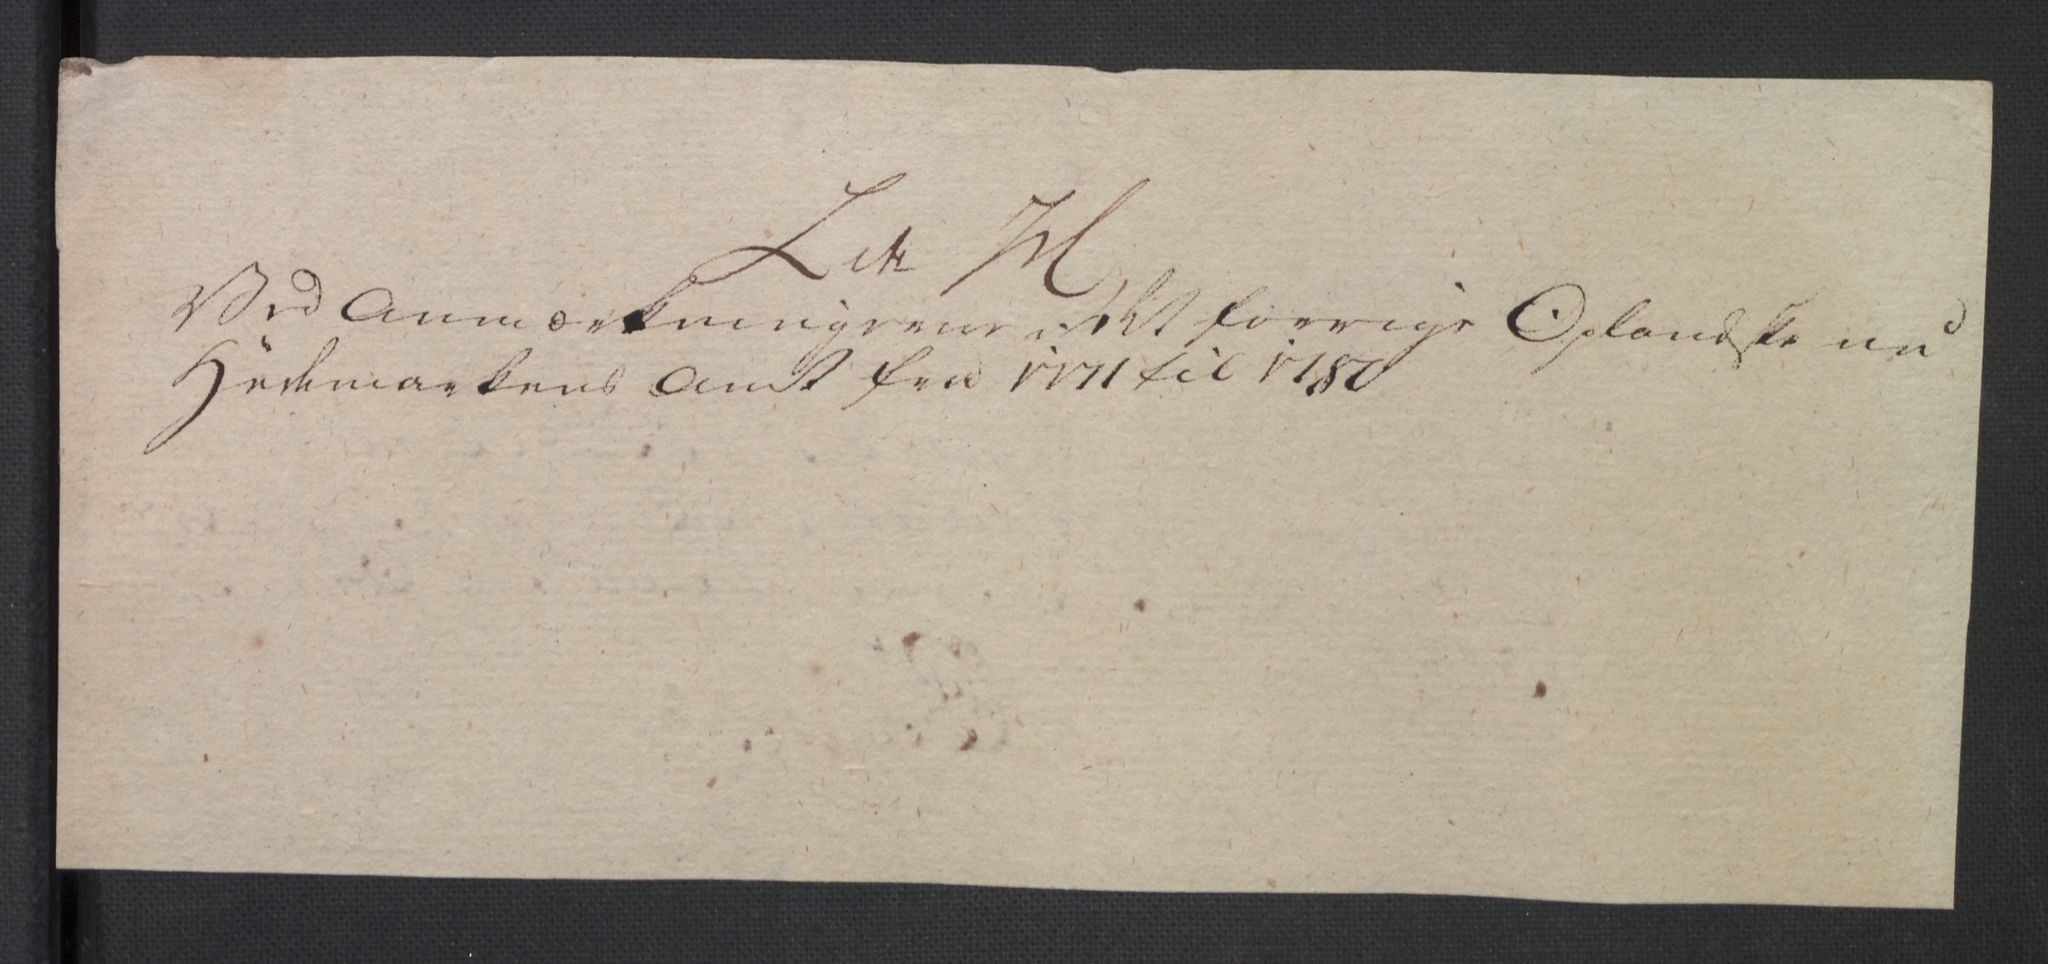 Litr M
Ved Anmærkningerne i det forrige Oplandske nu
Hedemarkens Amt fra 1771 til 1780